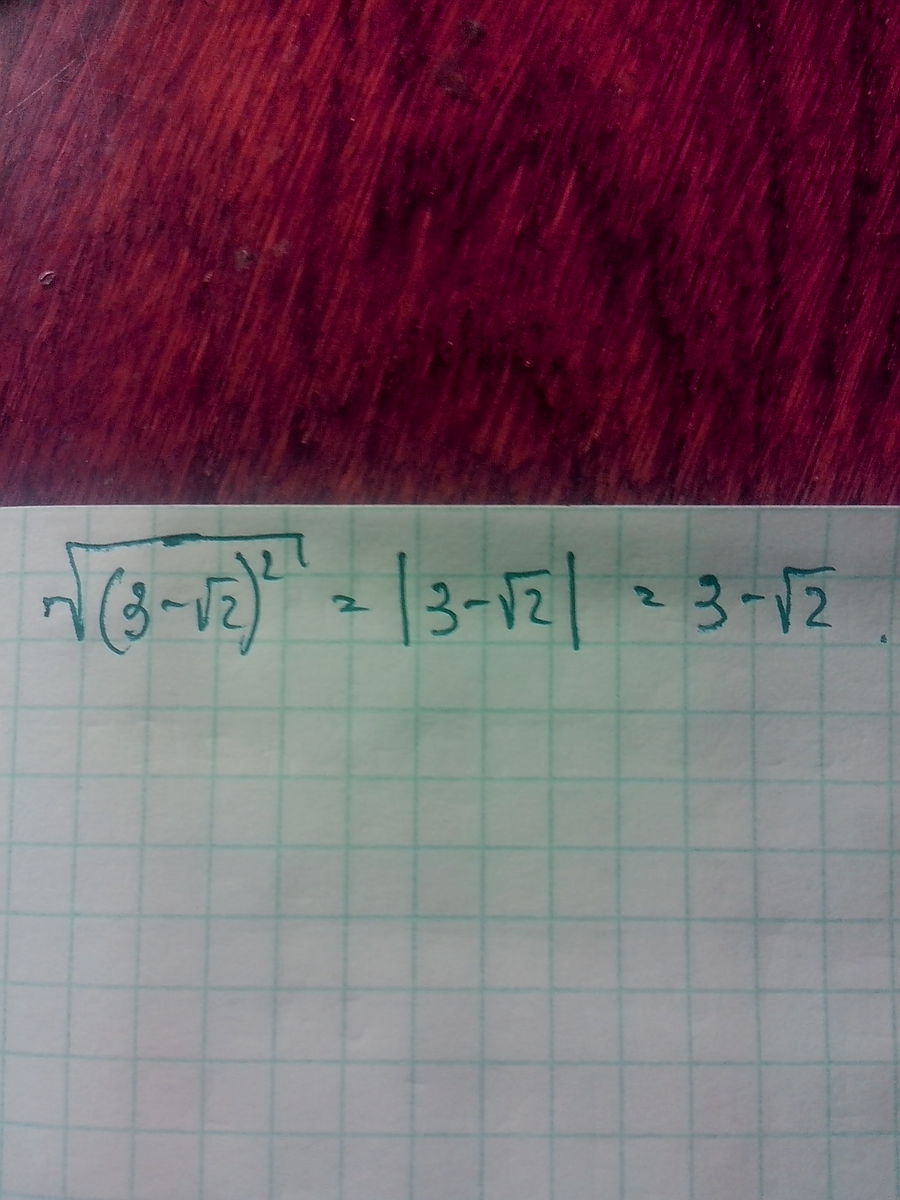 √(3-√2)² = |3-√2| = 3-√2.